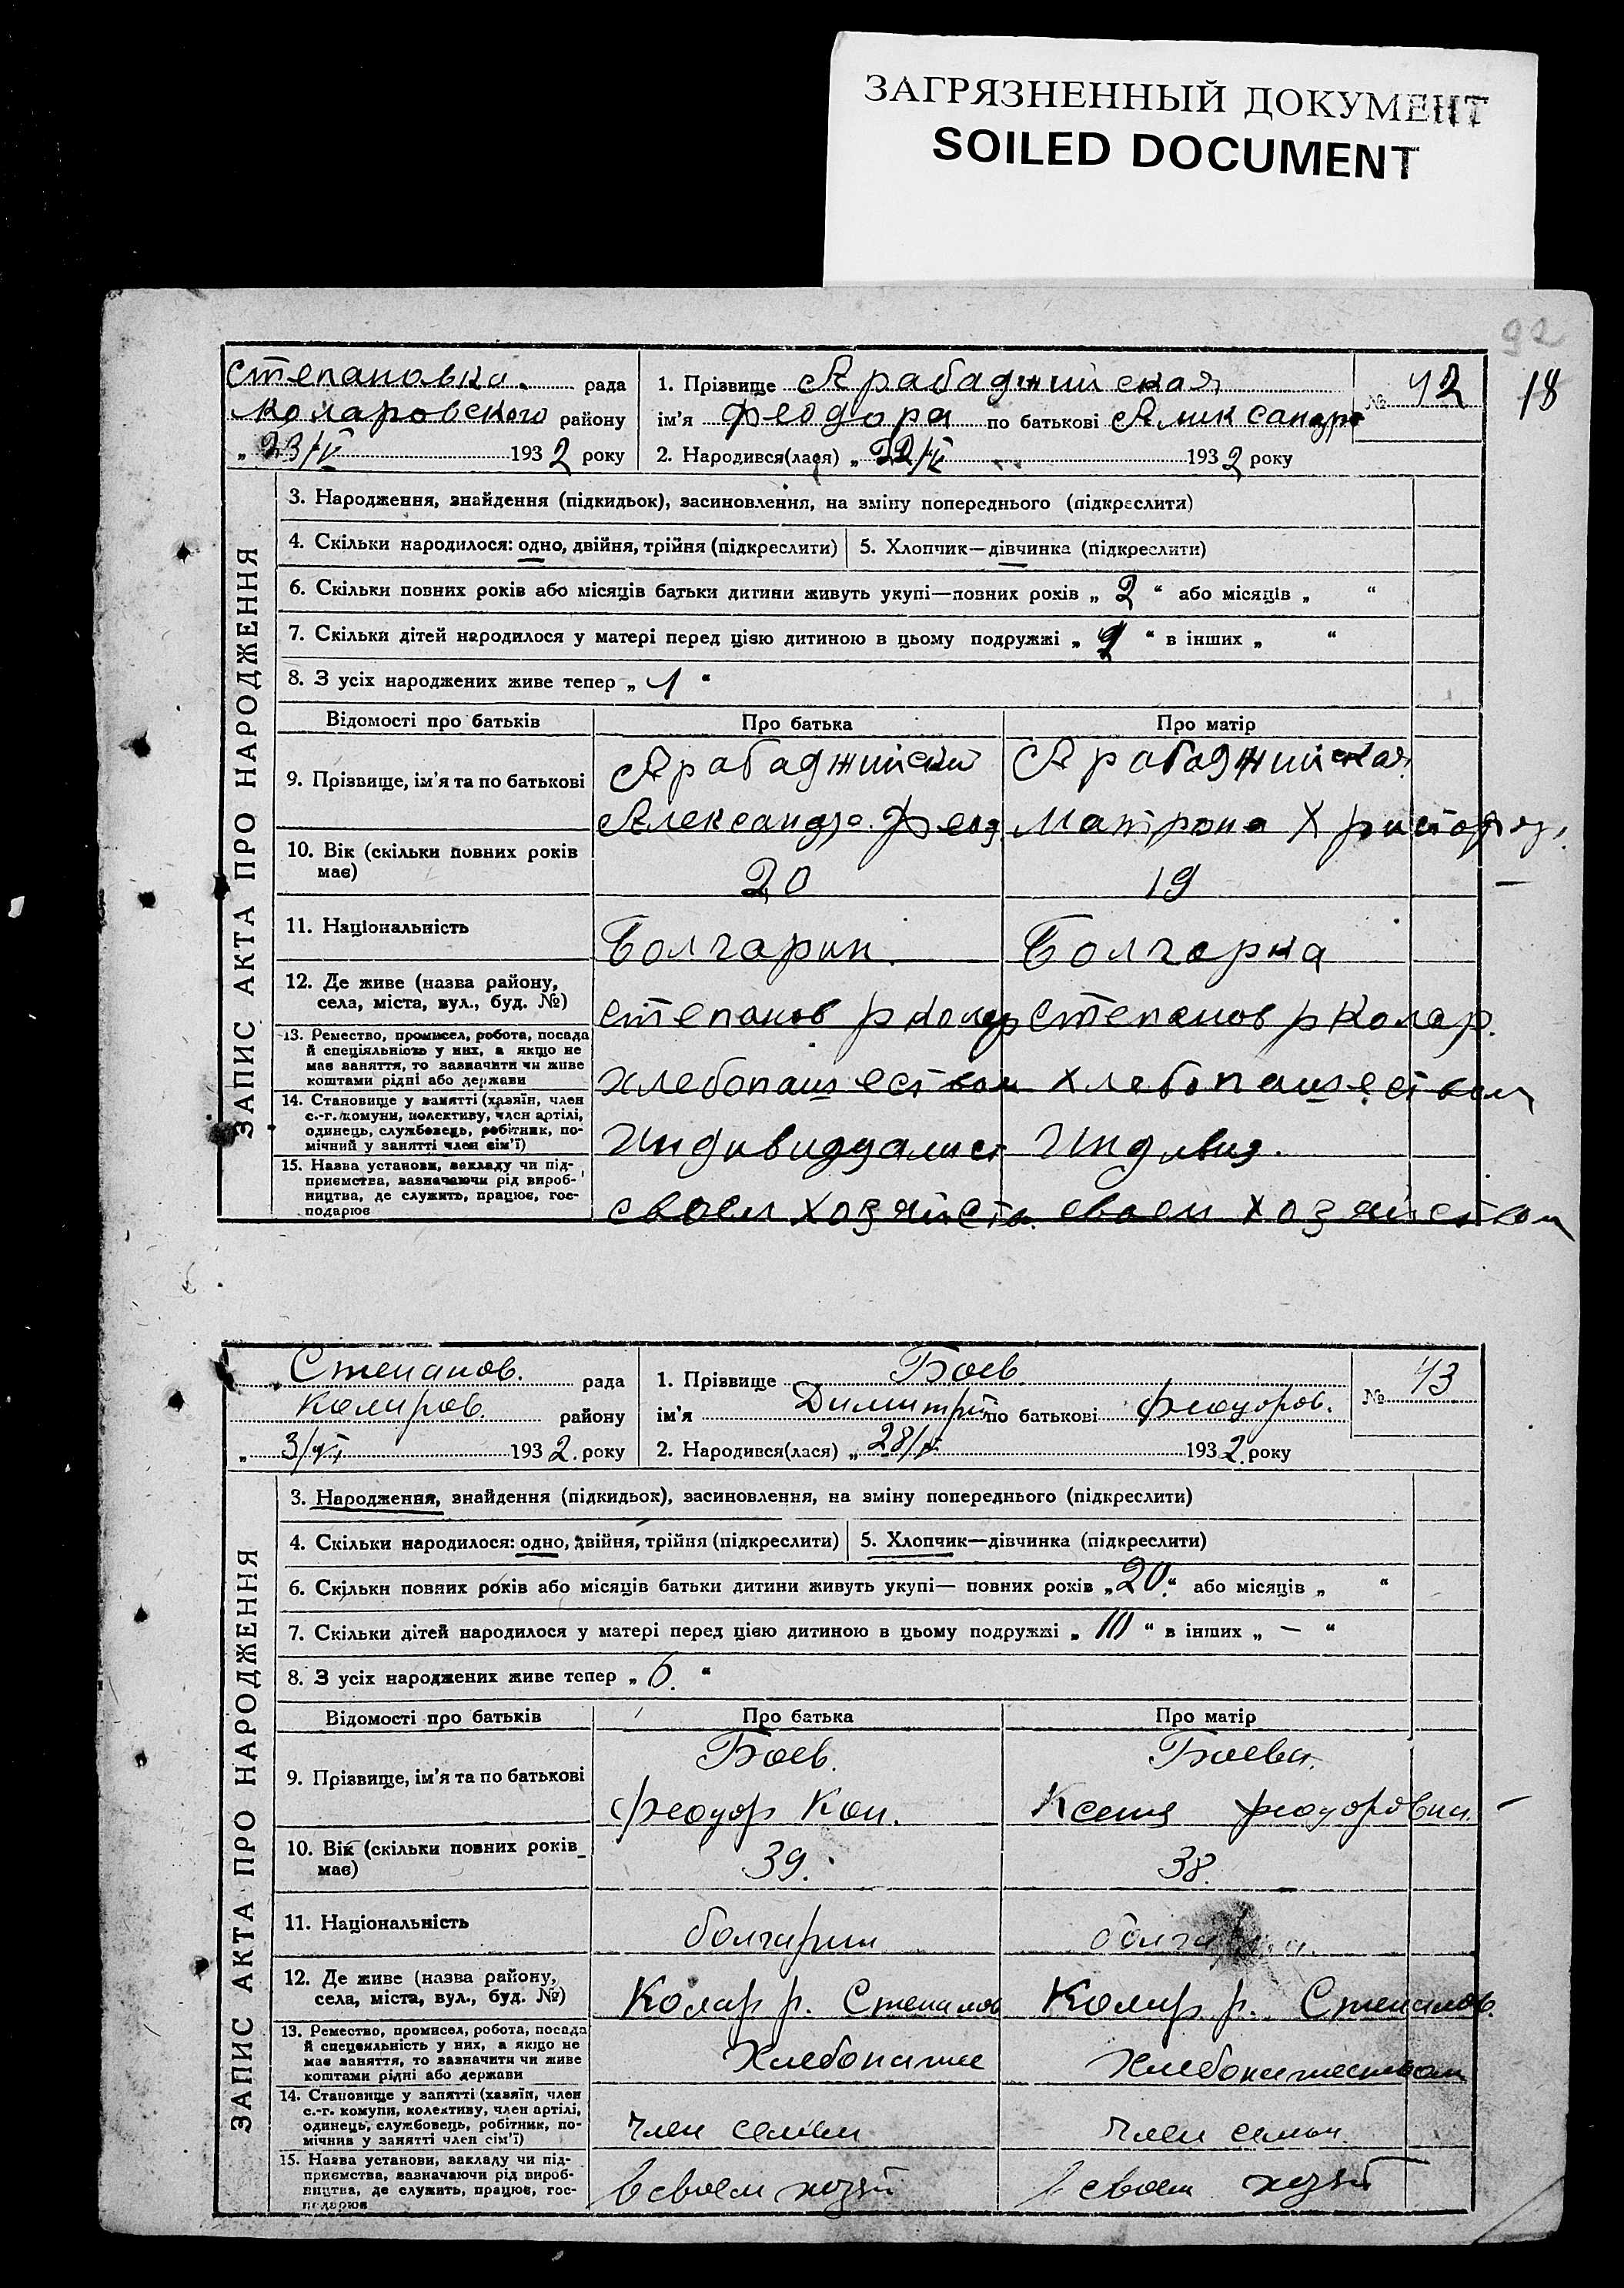 ЗАГРЯЗНЕННЫЙ ДОКУМЕНТ
SOILED DOCUMENT
92
18
Степановка. рада
Коларовского району
„ 23/V 1932 року
1. Прізвище Арабаджийская
ім'я Феодора по батькові Аликсандро
2. Народився(лася) „ 22/V 1932 року
№ 42
ЗАПИС АКТА ПРО НАРОДЖЕННЯ
3. Народження, знайдення (підкидьок), засиновлення, на зміну попереднього (підкреслити)
4. Скільки народилося: одно, двійня, трійня (підкреслити)
5. Хлопчик—дівчинка (підкреслити)
6. Скільки повних років або місяців батьки дитини живуть укупі—повних років „ 2 “ або місяців „ “
7. Скільки дітей народилося у матері перед цією дитиною в цьому подружжі „ “ в інших „ “
8. З усіх народжених живе тепер „ 1 “
Відомості про батьків Про батька Про матір
9. Прізвище, ім'я та по батькові
Арабаджийский
Александр Феод.
Арабаджийская
Матрона Христофор.
10. Вік (скільки повних років
має)
20 19
11. Національність
Болгарин. Болгарка
12. Де живе (назва району,
села, міста, вул., буд. №)
Степанов р Колар Степанов р Колар.
13. Ремество, промисел, робота, посада
й спеціяльність у них, а якщо не
має заняття, то зазначити чи живе
коштами рідні або держави
Хлебопашеством Хлебопашеством
14. Становище у занятті (хазяїн, член
с.-г. комуни, колективу, член артілі,
одинець, службовець, робітник, по-
мічний у занятті член сім'ї)
Индивидуалист Индивид.
15. Назва установи, закладу чи під-
приємства, зазначаючи рід вироб-
ництва, де служить, працює, гос-
подарює
своем хозяйств. своем хозяйством
Степанов. рада
Колиров. району
„ 3/VI 1932. року
1. Прізвище Боев.
ім'я Димитрий по батькові Феодоров.
2. Народився(лася) „ 28/V 1932. року
№ 43
ЗАПИС АКТА ПРО НАРОДЖЕННЯ
3. Народження, знайдення (підкидьок), засиновлення, на зміну попереднього (підкреслити)
4. Скільки народилося: одно, двійня, трійня (підкреслити)
5. Хлопчик—дівчинка (підкреслити)
6. Скільки повних років або місяців батьки дитини живуть укупі— повних років „ 20. “ або місяців „ “
7. Скільки дітей народилося у матері перед цією дитиною в цьому подружжі „ III “ в інших „ — “
8. З усіх народжених живе тепер „ 6. “
Відомості про батьків Про батька Про матір
9. Прізвище, ім'я та по батькові
Боев.
Феодор Кон.
Боева.
Ксения Феодоровна.
10. Вік (скільки повних років
має)
39. 38.
11. Національність
болгарин
12. Де живе (назва району,
села, міста, вул., буд. №)
Колар р. Степанов Колар р. Степанов.
13. Ремество, промисел, робота, посада
й спеціяльність у них, а якщо не
має заняття, то зазначити чи живе
коштами рідні або держави
Хлебопаше Хлебопашеством
14. Становище у занятті (хазяїн, член
с.-г. комуни, колективу, член артілі,
одинець, службовець, робітник, по-
мічник у занятті член сім'ї)
член семьи член семьи
15. Назва установи, закладу чи під-
приємства, зазначаючи рід вироб-
ництва, де служить, працює, гос-
подарює
в своем хозяй в своем хозяй